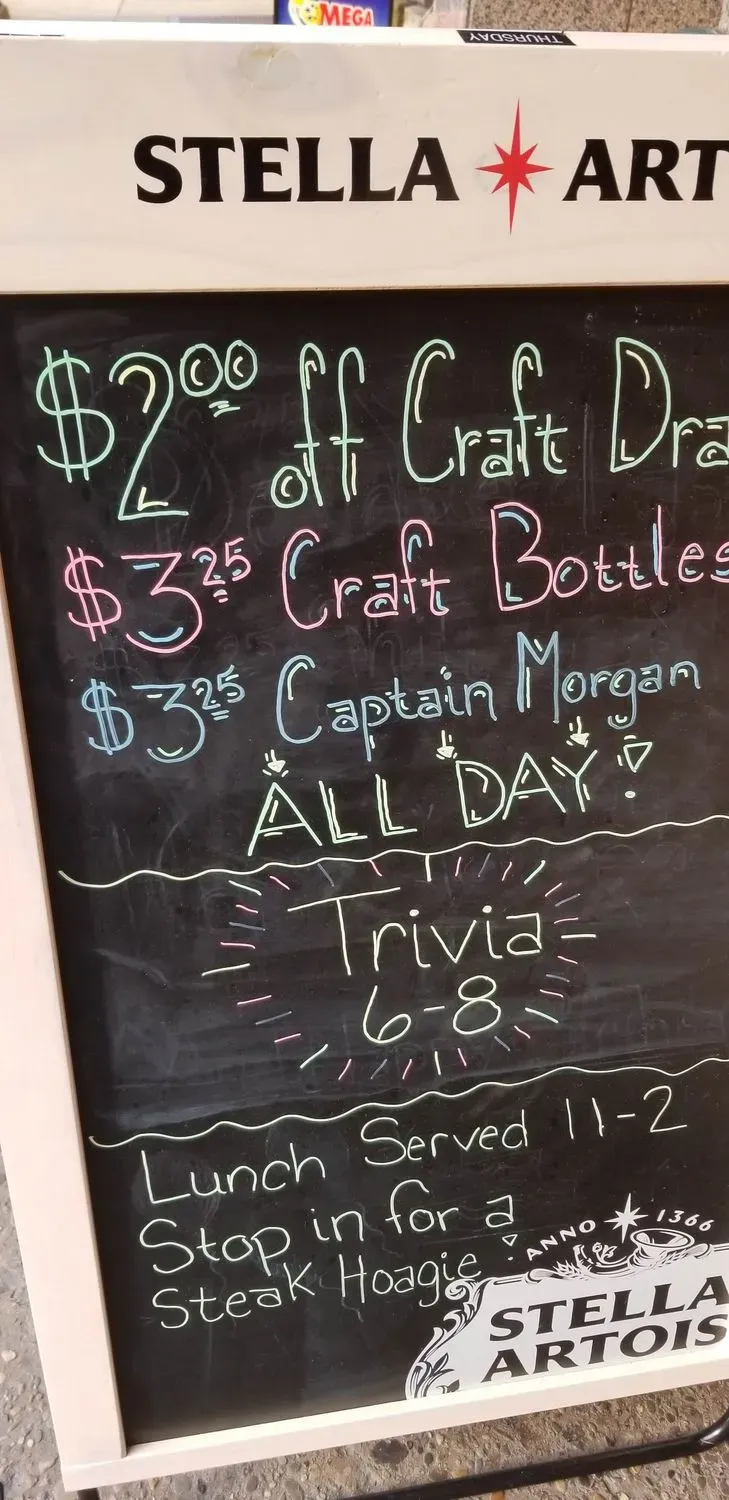 MEGA
THURSDAY
STELLA ART
$2.00 off Craft Dra
$3.25 Craft Bottles
$3.25 Captain Morgan
ALL DAY!
Trivia
6-8
Lunch Served 11-2
Stop in for a
Steak Hoagie!
ANNO 1366
STELLA
ARTOIS